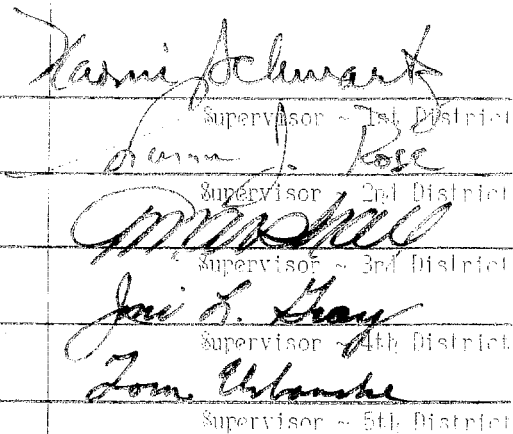 Naomi Schwartz
Supervisor ~ 1st District
Susan J. Rose
Supervisor ~ 2nd District
Marshall
Supervisor ~ 3rd District
Joni L. Gray
Supervisor ~ 4th District
Tom Urbanske
Supervisor ~ 5th District